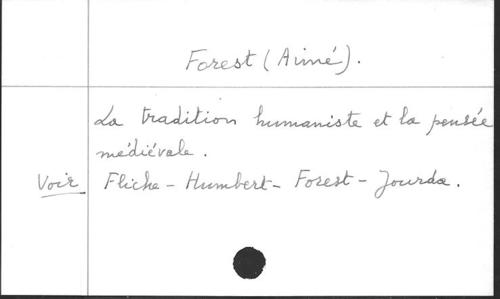 Forest (Aimé).
La tradition humaniste et la pensée
médiévale.
Voir Fliche - Humbert - Forest - Jourda.